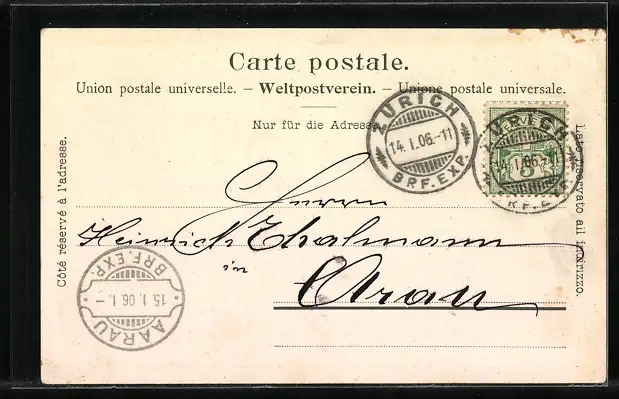 Carte postale.
Union postale universelle. – Weltpostverein. – Unione postale universale.
Nur für die Adresse
ZÜRICH
14. I. 06.-11
BRF. EXP.
ZÜRICH
I. 06.-11
BRF. EXP.
5
Côté réservé à l'adresse.
Lato riservato all indirizzo.
Herrn
Heinrich Thalmann
in
Arau
AARAU
15. I. 06. I. –
BRF. EXP.